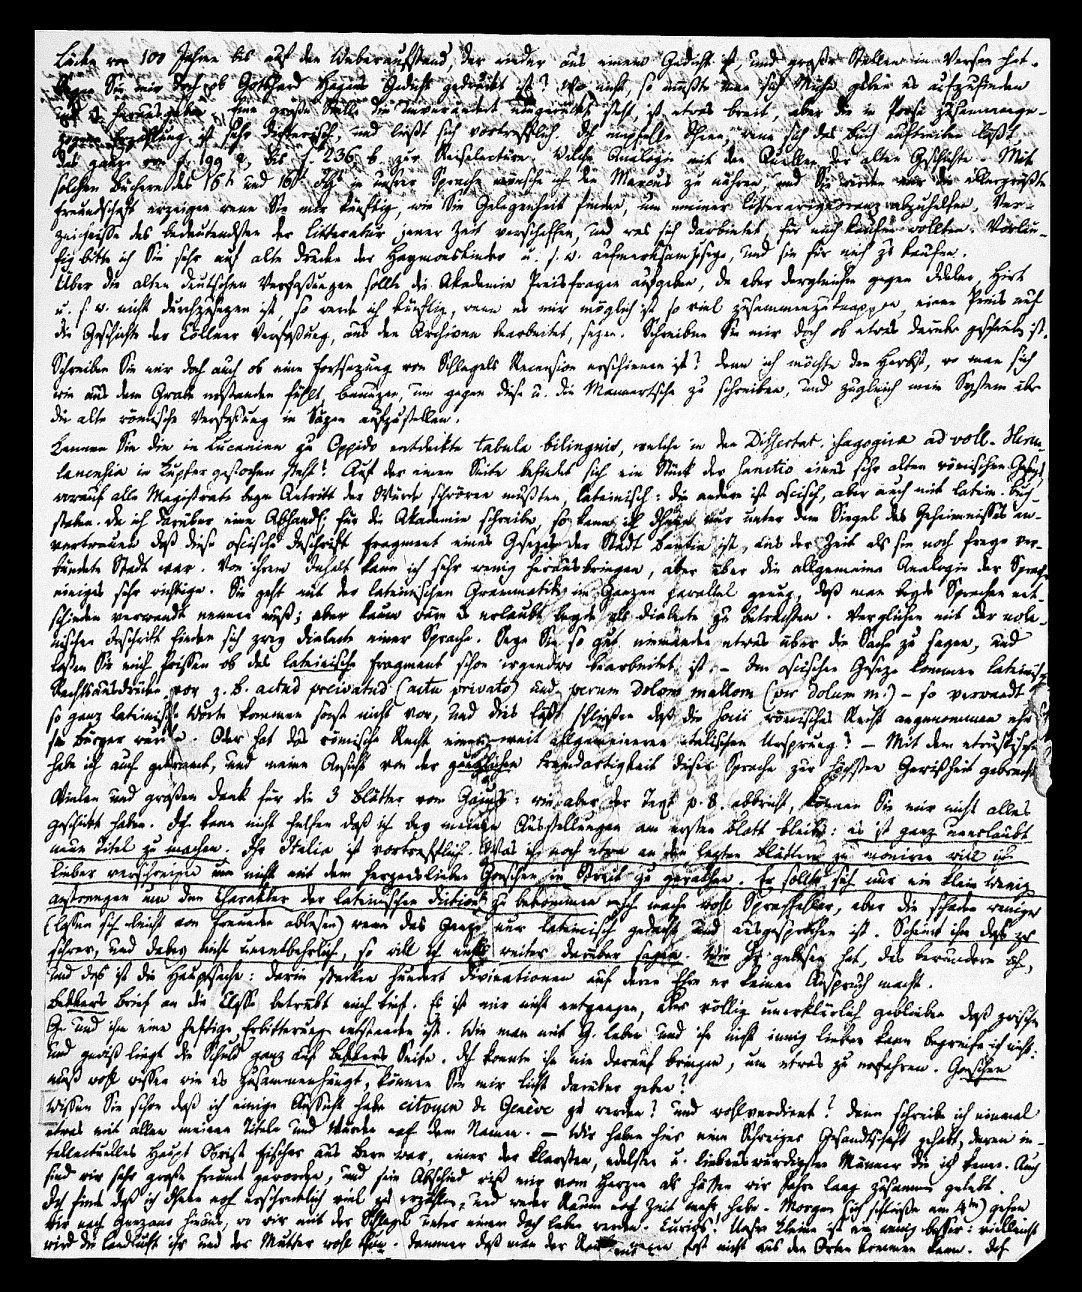 Lücke von 100 Jahren bis auf den Weberaufstand, der wieder aus einem Gedicht ist und große Stellen in Versen hat.
Sie mir doch ob Gotthard Hagens Gedicht gedruckt ist? Wo nicht, so müßte man sich Mühe geben es aufzufinden
und herausgeben. Eine große Stelle die unverändert eingerückt steht, ist etwas breit, aber die in Prosa zusammenge-
zogene Erzählung ist sehr dichterisch, und läßt sich vortrefflich. Ich empfehle Ihnen, wenn sich das Buch auftreiben läßt
das ganze von f. 199 a. bis f. 236 b. zur Reiselectüre. Welche Analogie mit den Quellen der alten Geschichte. Mit
solchen Büchern des 15t und 16t Jhdt in unsrer Sprache wünsche ich den Marcus zu nähren, und Sie würden mir die allergrößte
Freundschaft erzeigen wenn Sie mir künftig, wie Sie Gelegenheit finden, um meiner litterarischen abzuhelfen, Ver-
zeichnisse des bedeutendsten der Litteratur jener Zeit verschaffen, und was sich darbietet, für mich kaufen wollten. Vorläu-
fig bitte ich Sie sehr auf alte Drucke der Haymonskinder u. s. w. aufmerksam zu seyn, und sie für mich zu kaufen.
Über die alten deutschen Verfaßungen sollte die Akademie Preisfragen aufgeben, da aber dergleichen gegen Ideler, Hirt
u. s. w. nicht durchzusezen ist, so werde ich künftig, wenn es mir möglich ist so viel zusammenzuknappen, einen Preis auf
die Geschichte der Cöllner Verfaßung, aus den Archiven bearbeitet, sezen. Schreiben Sie mir doch ob etwas darüber geschrieben ist.
Schreiben Sie mir doch auch ob eine Fortsezung von Schlegels Recension erschienen ist? denn ich möchte den Herbst, wo man sich
wie aus dem Grabe erstanden fühlt, benuzen, um gegen diese u. die Mannertsche zu schreiben, und zugleich mein System über
die alte römische Verfaßung in Säzen aufzustellen.
Kennen Sie die in Lucanien zu Oppido entdeckte tabula bilinguis, welche in den Dissertat. isagogicae ad voll. Hercu-
lanensia in Kupfer gestochen steht? Auf der einen Seite befindet sich ein Stück der sanctio eines sehr alten römischen Gesezes
worauf alle Magistrate beym Antritt der Würde schwören mußten, lateinisch: die andere ist oscisch, aber auch mit latein. Buch-
staben. Da ich darüber eine Abhandl. für die Akademie schreibe, so kann ich Ihnen nur unter dem Siegel des Geheimnisses an-
vertrauen daß diese oscische Inschrift Fragment eines Gesezes der Stadt Bantia ist, aus der Zeit als sie noch freye ver-
bündete Stadt war. Von ihrem Inhalt kann ich sehr wenig herausbringen, aber über die allgemeine Analogie der Sprache
einiges sehr wichtige. Sie geht mit der lateinischen Grammatik im Ganzen parallel genug, daß man beyde Sprachen ent-
schieden verwandt nennen muß; aber kaum wäre es erlaubt beyde als Dialecte zu betrachten. Verglichen mit der nola-
nischen Inschrift finden sich zwey Dialecte einer Sprache. Seyn Sie so gut niemanden etwas über die Sache zu sagen, und
lassen Sie mich wissen ob das lateinische Fragment schon irgendwo bearbeitet ist. — Im oscischen Geseze kommen lateinische
Rechtsausdrücke vor z. B. actud preivatud (actu privato) und perum dolom mallom (per dolum m.) — so verwandt
so ganz lateinische Worte kommen sonst nicht vor, und dies läßt schließen daß die Socii römisches Recht angenommen ehe
sie Bürger wurden. Oder hat das römische Recht einen weit allgemeineren italischen Ursprung? — Mit dem etruskischen
habe ich auch gekramt, und meine Ansicht von der gänzlichen Fremdartigkeit dieser Sprache zur höchsten Gewißheit gebracht.
Vielen und großen Dank für die 3 Blätter vom Gajus: wie aber der Text p. 8. abbricht, können Sie mir nicht alles
geschickt haben. Ich kann nicht helfen daß ich bey meinen Ausstellungen am ersten Blatt bleibe: es ist ganz unerlaubt
neue Titel zu machen. Ihr Italia ist vortrefflich. Was ich noch etwa an den lezten Blättern zu moniren will ich
lieber verschweigen um nicht mit dem herzenslieben Goeschen in Streit zu gerathen. Er sollte sich nur ein klein wenig
anstrengen um den Charakter der lateinischen Diction zu bekommen. Ich mache wohl Sprachfehler, aber die schaden weniger
(lassen sich leicht von Freunden ablesen) wenn das Ganze nur lateinisch gedacht und ausgesprochen ist. Scheint ihm das zu
schwer, und dabey nicht unentbehrlich, so will ich nicht weiter darüber sagen. Wie Er gelesen hat, das bewundere ich,
und das ist die Hauptsache: darin stecken hundert Divinationen auf deren Ehre er keinen Anspruch macht.
Bekkers Brief an die Classe betrübt mich tief. Es ist mir nicht entgangen, aber völlig unerklärlich geblieben daß zwischen
G. und ihm eine heftige Erbitterung entstanden ist. Wie man mit G. leben und ihn nicht innig lieben kann begreife ich nicht:
und gewiß liegt die Schuld ganz auf Bekkers Seite. Ich konnte ihn nie darauf bringen, um etwas zu erfahren. Goeschen
muß wohl wissen wie es zusammenhängt, können Sie mir Licht darüber geben?
Wissen Sie schon daß ich einige Aussicht habe citoyen de Genève zu werden? und wohlverdient? denn schreibe ich einmal
etwas mit allen meinen Titeln und Würden auf dem Namen. — Wir haben hier eine Schweizer Gesandtschaft gehabt, deren in-
tellectuelles Haupt Obrist Fischer aus Bern war, einer der klarsten, edelsten u. liebenswürdigsten Männer die ich kenne. Auch
sind wir sehr große Freunde geworden, und sein Abschied riß mir vom Herzen als hätten wir Jahre lang zusammen gelebt.
Ich finde daß ich Ihnen noch erschrecklich viel zu erzählen, und weder Raum noch Zeit mehr habe. Morgen (ich schließe am 4ten) gehen
wir nach Genzano hinaus, wo wir mit der Schlegel unter einem Dach leben werden. Curios. Unsre Kleine ist ein wenig besser: vielleicht
wird die Landluft ihr und der Mutter wohl thun. Jammer daß man der Räuber wegen fast nicht aus den Orten kommen kann. Ich